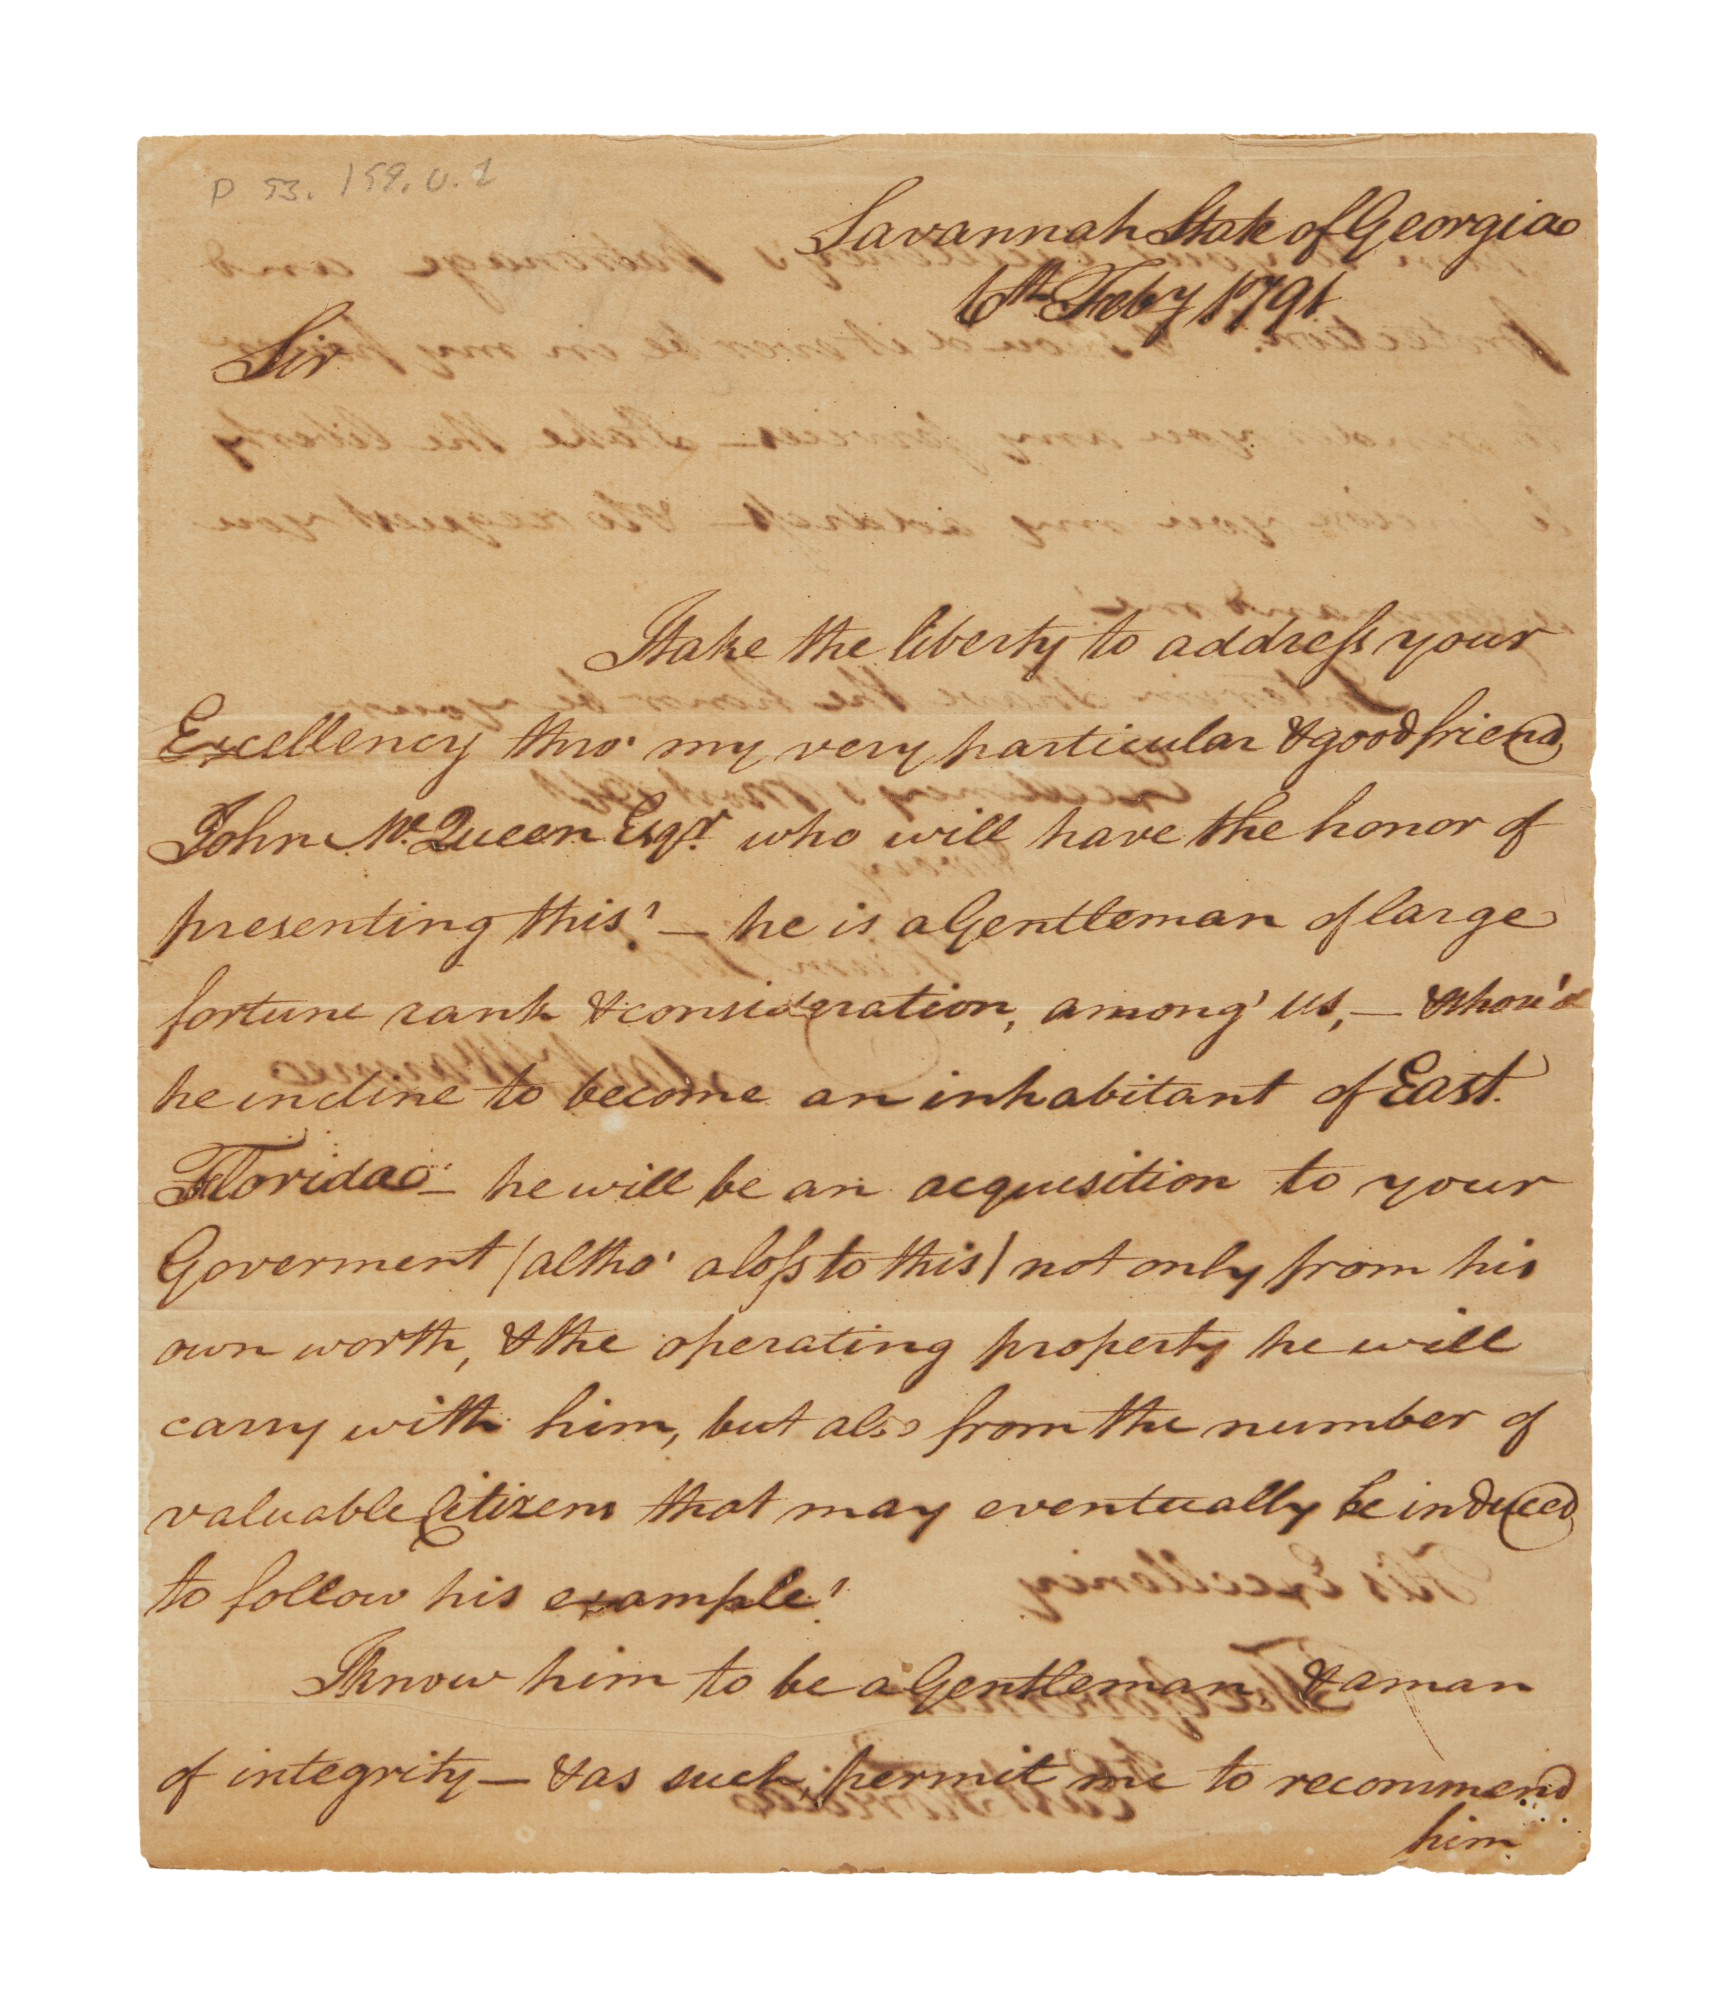 P 53. 159. 0. 2
Savannah State of Georgia
6th Feby 1791
Sir
I take the liberty to address your
Excellency thro' my very particular & good friend
John Mc. Queen Esqr. who will have the honor of
presenting this! — he is a Gentleman of large
fortune rank & consideration, among' us, — & shou'd
he incline to become an inhabitant of East
Florida — he will be an acquisition to your
Goverment (altho' a loss to this) not only from his
own worth, & the operating property he will
carry with him, but also from the number of
valuable Citizens that may eventually be induced
to follow his example!
I know him to be a Gentleman, & a man
of integrity — & as such, permit me to recommend
him